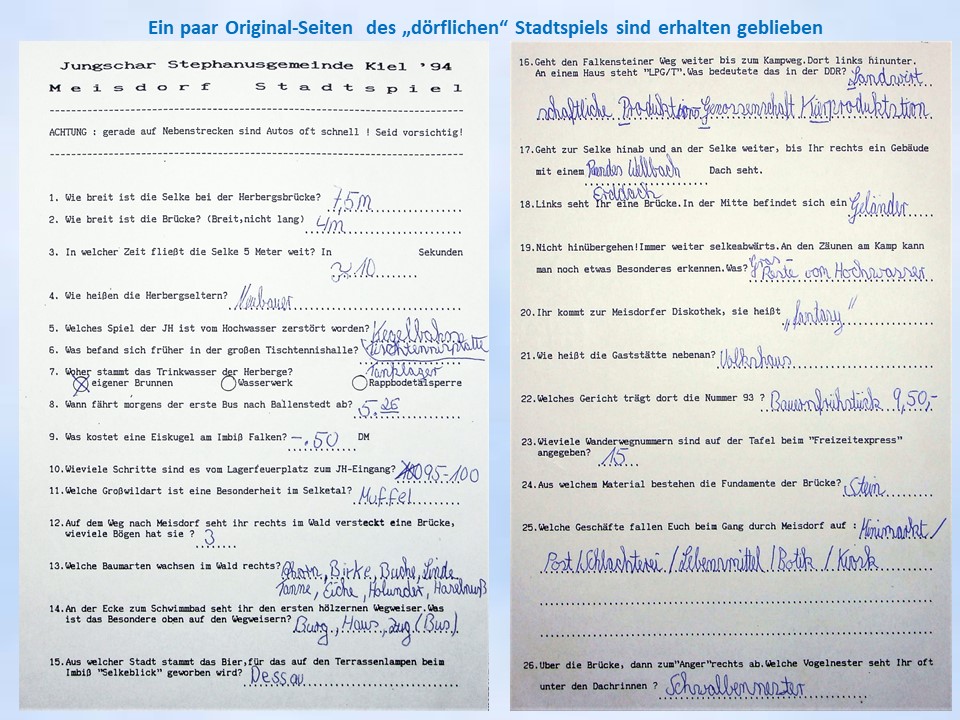 Ein paar Original-Seiten des „dörflichen“ Stadtspiels sind erhalten geblieben
Jungschar Stephanusgemeinde Kiel '94
Meisdorf Stadtspiel
ACHTUNG : gerade auf Nebenstrecken sind Autos oft schnell ! Seid vorsichtig!
1. Wie breit ist die Selke bei der Herbergsbrücke? 7,5m
2. Wie breit ist die Brücke? (Breit,nicht lang) 4m
3. In welcher Zeit fließt die Selke 5 Meter weit? In Sekunden
~ 10
4. Wie heißen die Herbergseltern? Neubauer
5. Welches Spiel der JH ist vom Hochwasser zerstört worden? Kegelbahn
6. Was befand sich früher in der großen Tischtennishalle? Tischtennisplatte
Tanzlager
7. Woher stammt das Trinkwasser der Herberge?
eigener Brunnen Wasserwerk Rappbodetalsperre
8. Wann fährt morgens der erste Bus nach Ballenstedt ab? 5.26
9. Was kostet eine Eiskugel am Imbiß Falken? -.50 DM
10.Wieviele Schritte sind es vom Lagerfeuerplatz zum JH-Eingang? 95-100
11.Welche Großwildart ist eine Besonderheit im Selketal? Muffel
12.Auf dem Weg nach Meisdorf seht ihr rechts im Wald versteckt eine Brücke,
wieviele Bögen hat sie ? 3
13.Welche Baumarten wachsen im Wald rechts? Ahorn, Birke, Buche, Linde
Tanne, Eiche, Holunder, Haselnuß
14.An der Ecke zum Schwimmbad seht ihr den ersten hölzernen Wegweiser.Was
ist das Besondere oben auf den Wegweisern? Burg, Haus, Zug (Bus)
15.Aus welcher Stadt stammt das Bier,für das auf den Terrassenlampen beim
Imbiß "Selkeblick" geworben wird? Dessau
16.Geht den Falkensteiner Weg weiter bis zum Kampweg.Dort links hinunter.
An einem Haus steht "LPG/T".Was bedeutete das in der DDR? Landwirt
schaftliche Produktions Genossenschaft
17.Geht zur Selke hinab und an der Selke weiter, bis Ihr rechts ein Gebäude
mit einem Rundes Wellbach Dach seht.
Erddach
18.Links seht Ihr eine Brücke.In der Mitte befindet sich ein Geländer
19.Nicht hinübergehen!Immer weiter selkeabwärts.An den Zäunen am Kamp kann
man noch etwas Besonderes erkennen.Was? Gras Reste vom Hochwasser
20.Ihr kommt zur Meisdorfer Diskothek, sie heißt „Fantasy“
21.Wie heißt die Gaststätte nebenan? Volkshaus
22.Welches Gericht trägt dort die Nummer 93 ? Bauernfrühstück 9,50,-
23.Wieviele Wanderwegnummern sind auf der Tafel beim "Freizeitexpress"
angegeben? 15
24.Aus welchem Material bestehen die Fundamente der Brücke? Stein
25.Welche Geschäfte fallen Euch beim Gang durch Meisdorf auf : Minimarkt /
Post / Schlachterei / Lebensmittel / Botik / Kiosk
26.Über die Brücke, dann zum"Anger"rechts ab.Welche Vogelnester seht Ihr oft
unter den Dachrinnen ? Schwalbennester